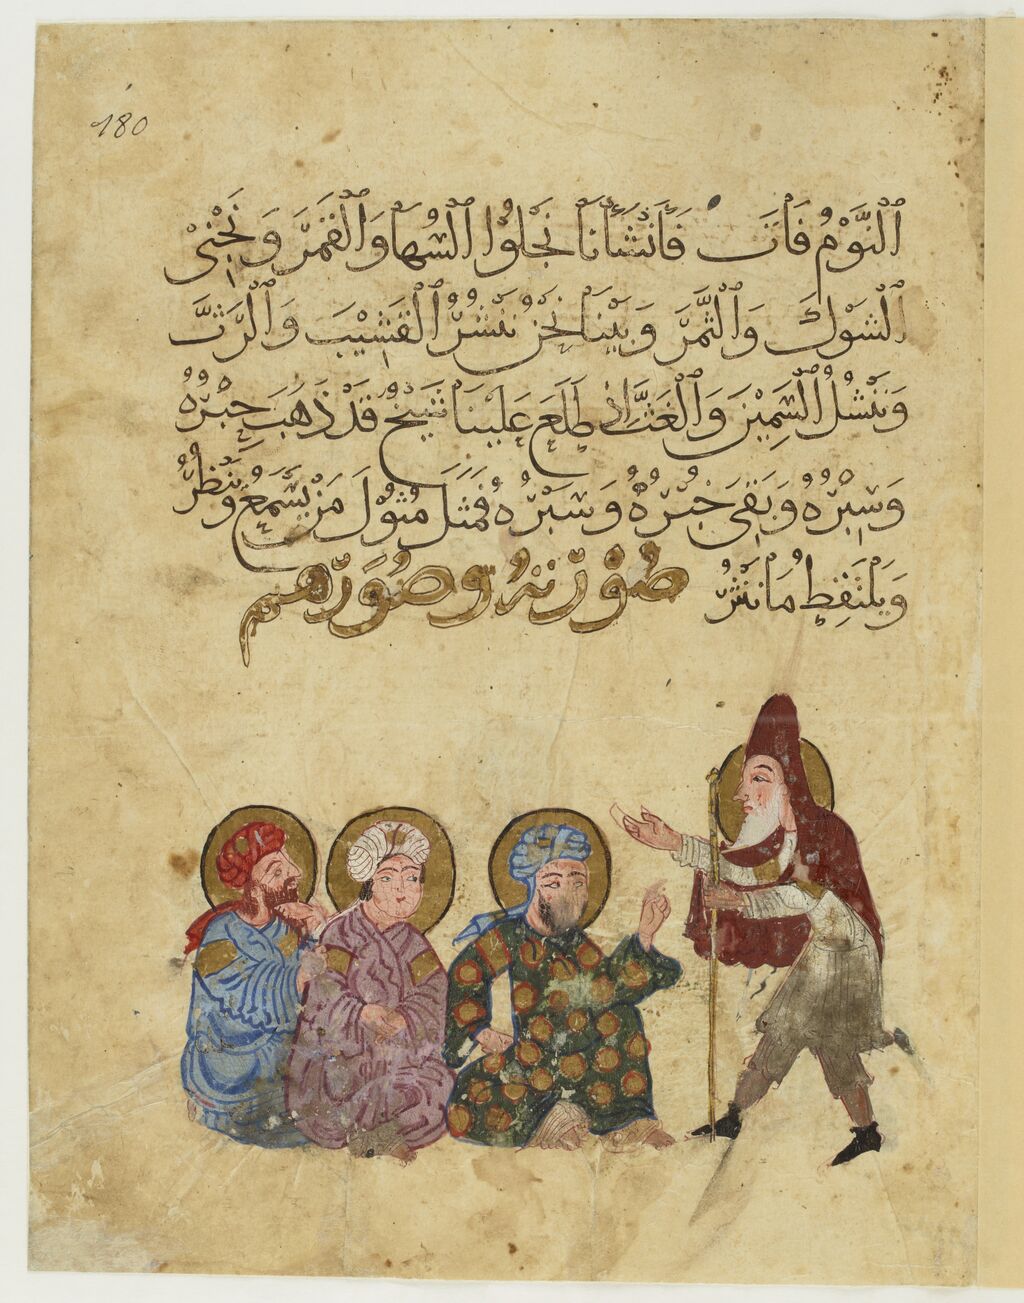 180
اَلنَّوْمُ فَاتَ فَأَنْشَأْنَا نَجْلُوُا السُّهَا وَالْقَمَرَ وَنَجْنِيْ
الشَّوْكَ وَالثَّمَرَ وَبَيْنَا نَحْنُ نَنْشُرُ الْقَشِيْبَ وَالرَّثَّ
وَنَنْشُلُ السَّمِيْنَ وَالْغَثَّ اِذْ طَلَعَ عَلَيْنَا شَيْخٌ قَدْ ذَهَبَ حِبْرُهُ
وَسِبْرُهُ وَبَقِيَ خُبْرُهُ وَسَبْرُهُ فَمَثَلَ مُثُوْلَ مَنْ يَسْمَعُ وَيَنْظُرُ
وَيَلْتَقِطُ مَا نَنْثُرُ صُوْرَتُهُ وَصُوَرُهُم